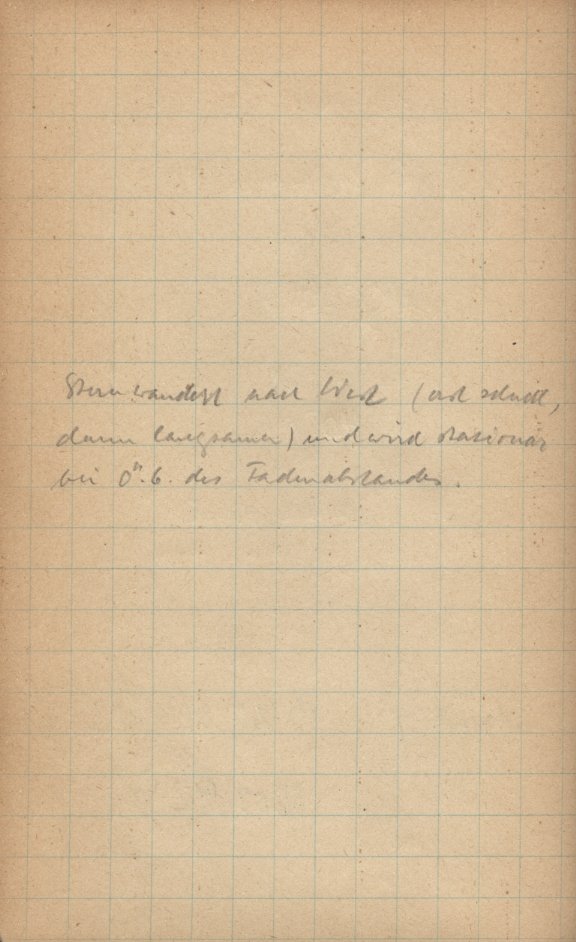 Stern wandert nach West (erst schnell,
dann langsamer) und wird stationär
bei 0".6. des Fadenabstandes.